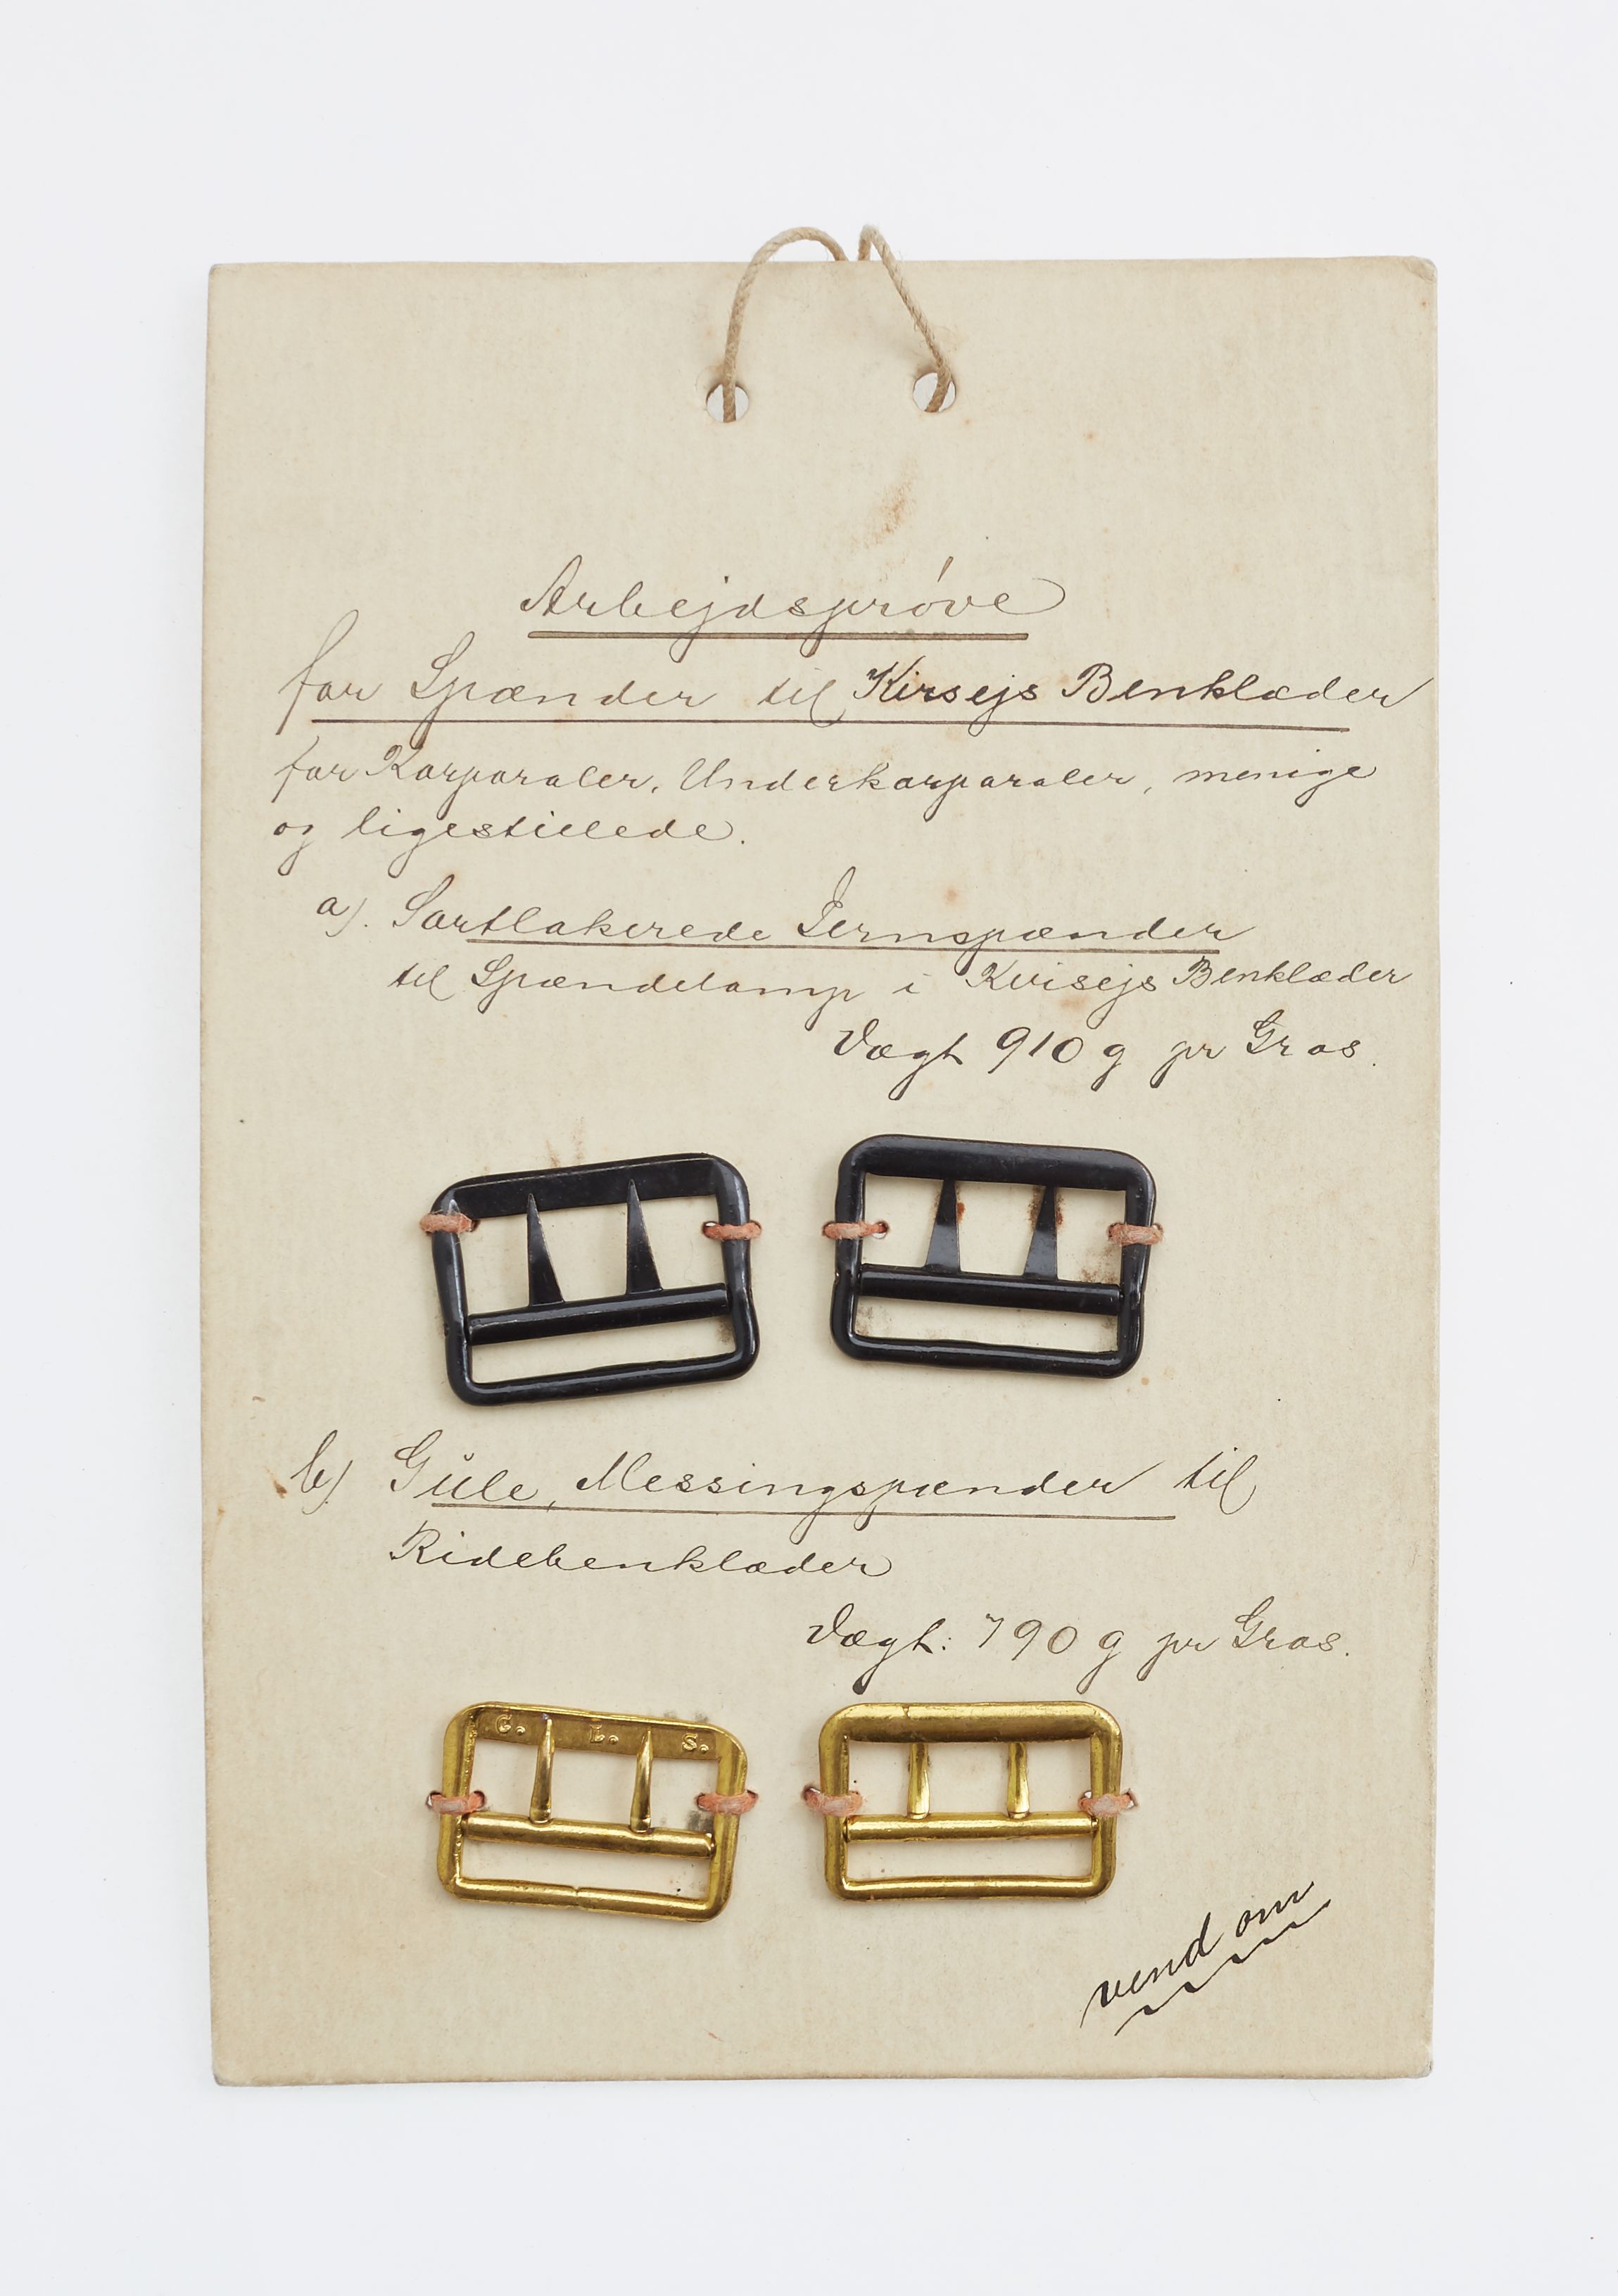 Arbejdsprøve
for Spænder til Kirsejs Benklæder
for Korporaler, Underkorporaler, menige
og ligestillede.
a). Sortlakerede Jernspænder
til Spændetamp i Kirsejs Benklæder
Vægt 910 g pr Gros.
b) Gule, Messingspænder til
Ridebenklæder
Vægt: 790 g pr Gros.
G. L. S.
vend om